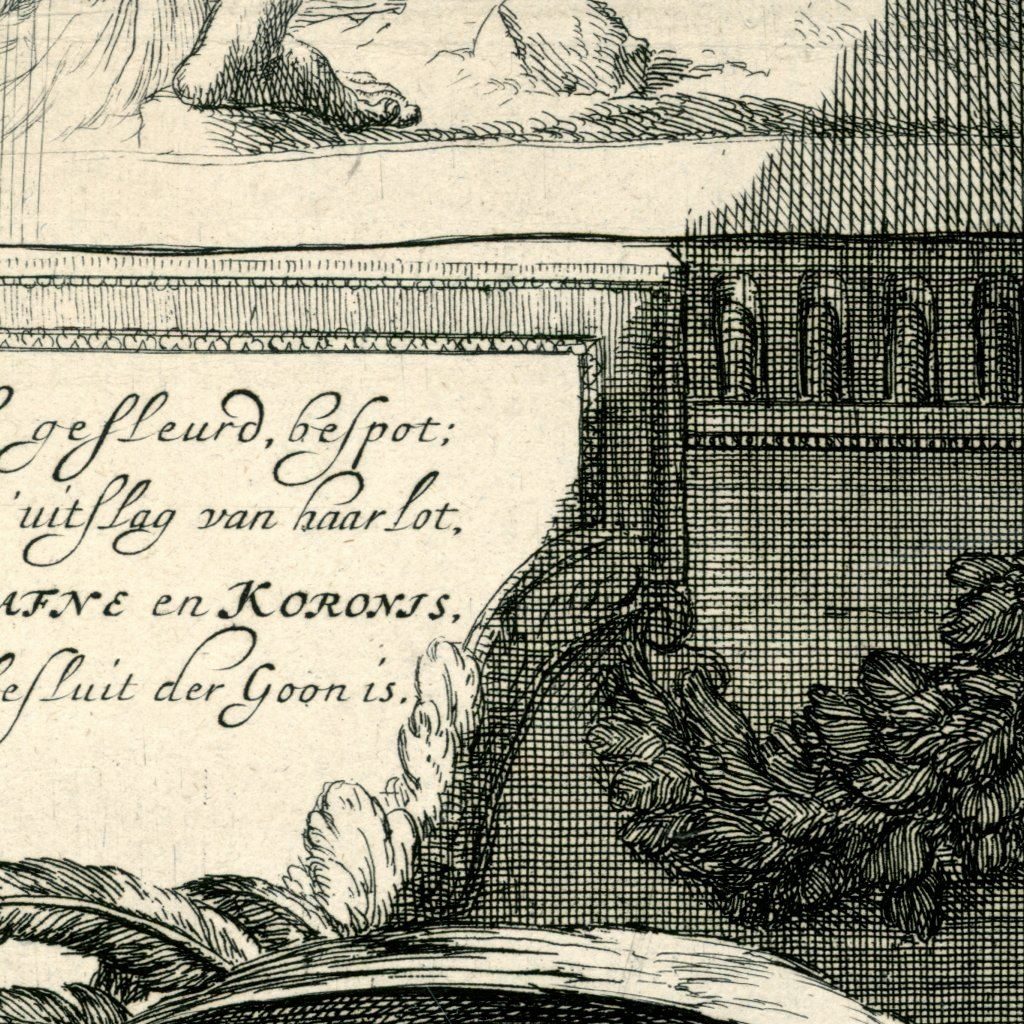 gesleurd, bespot;
uitslag van haar lot,
AFNE en KORONIS,
besluit der Goon is.